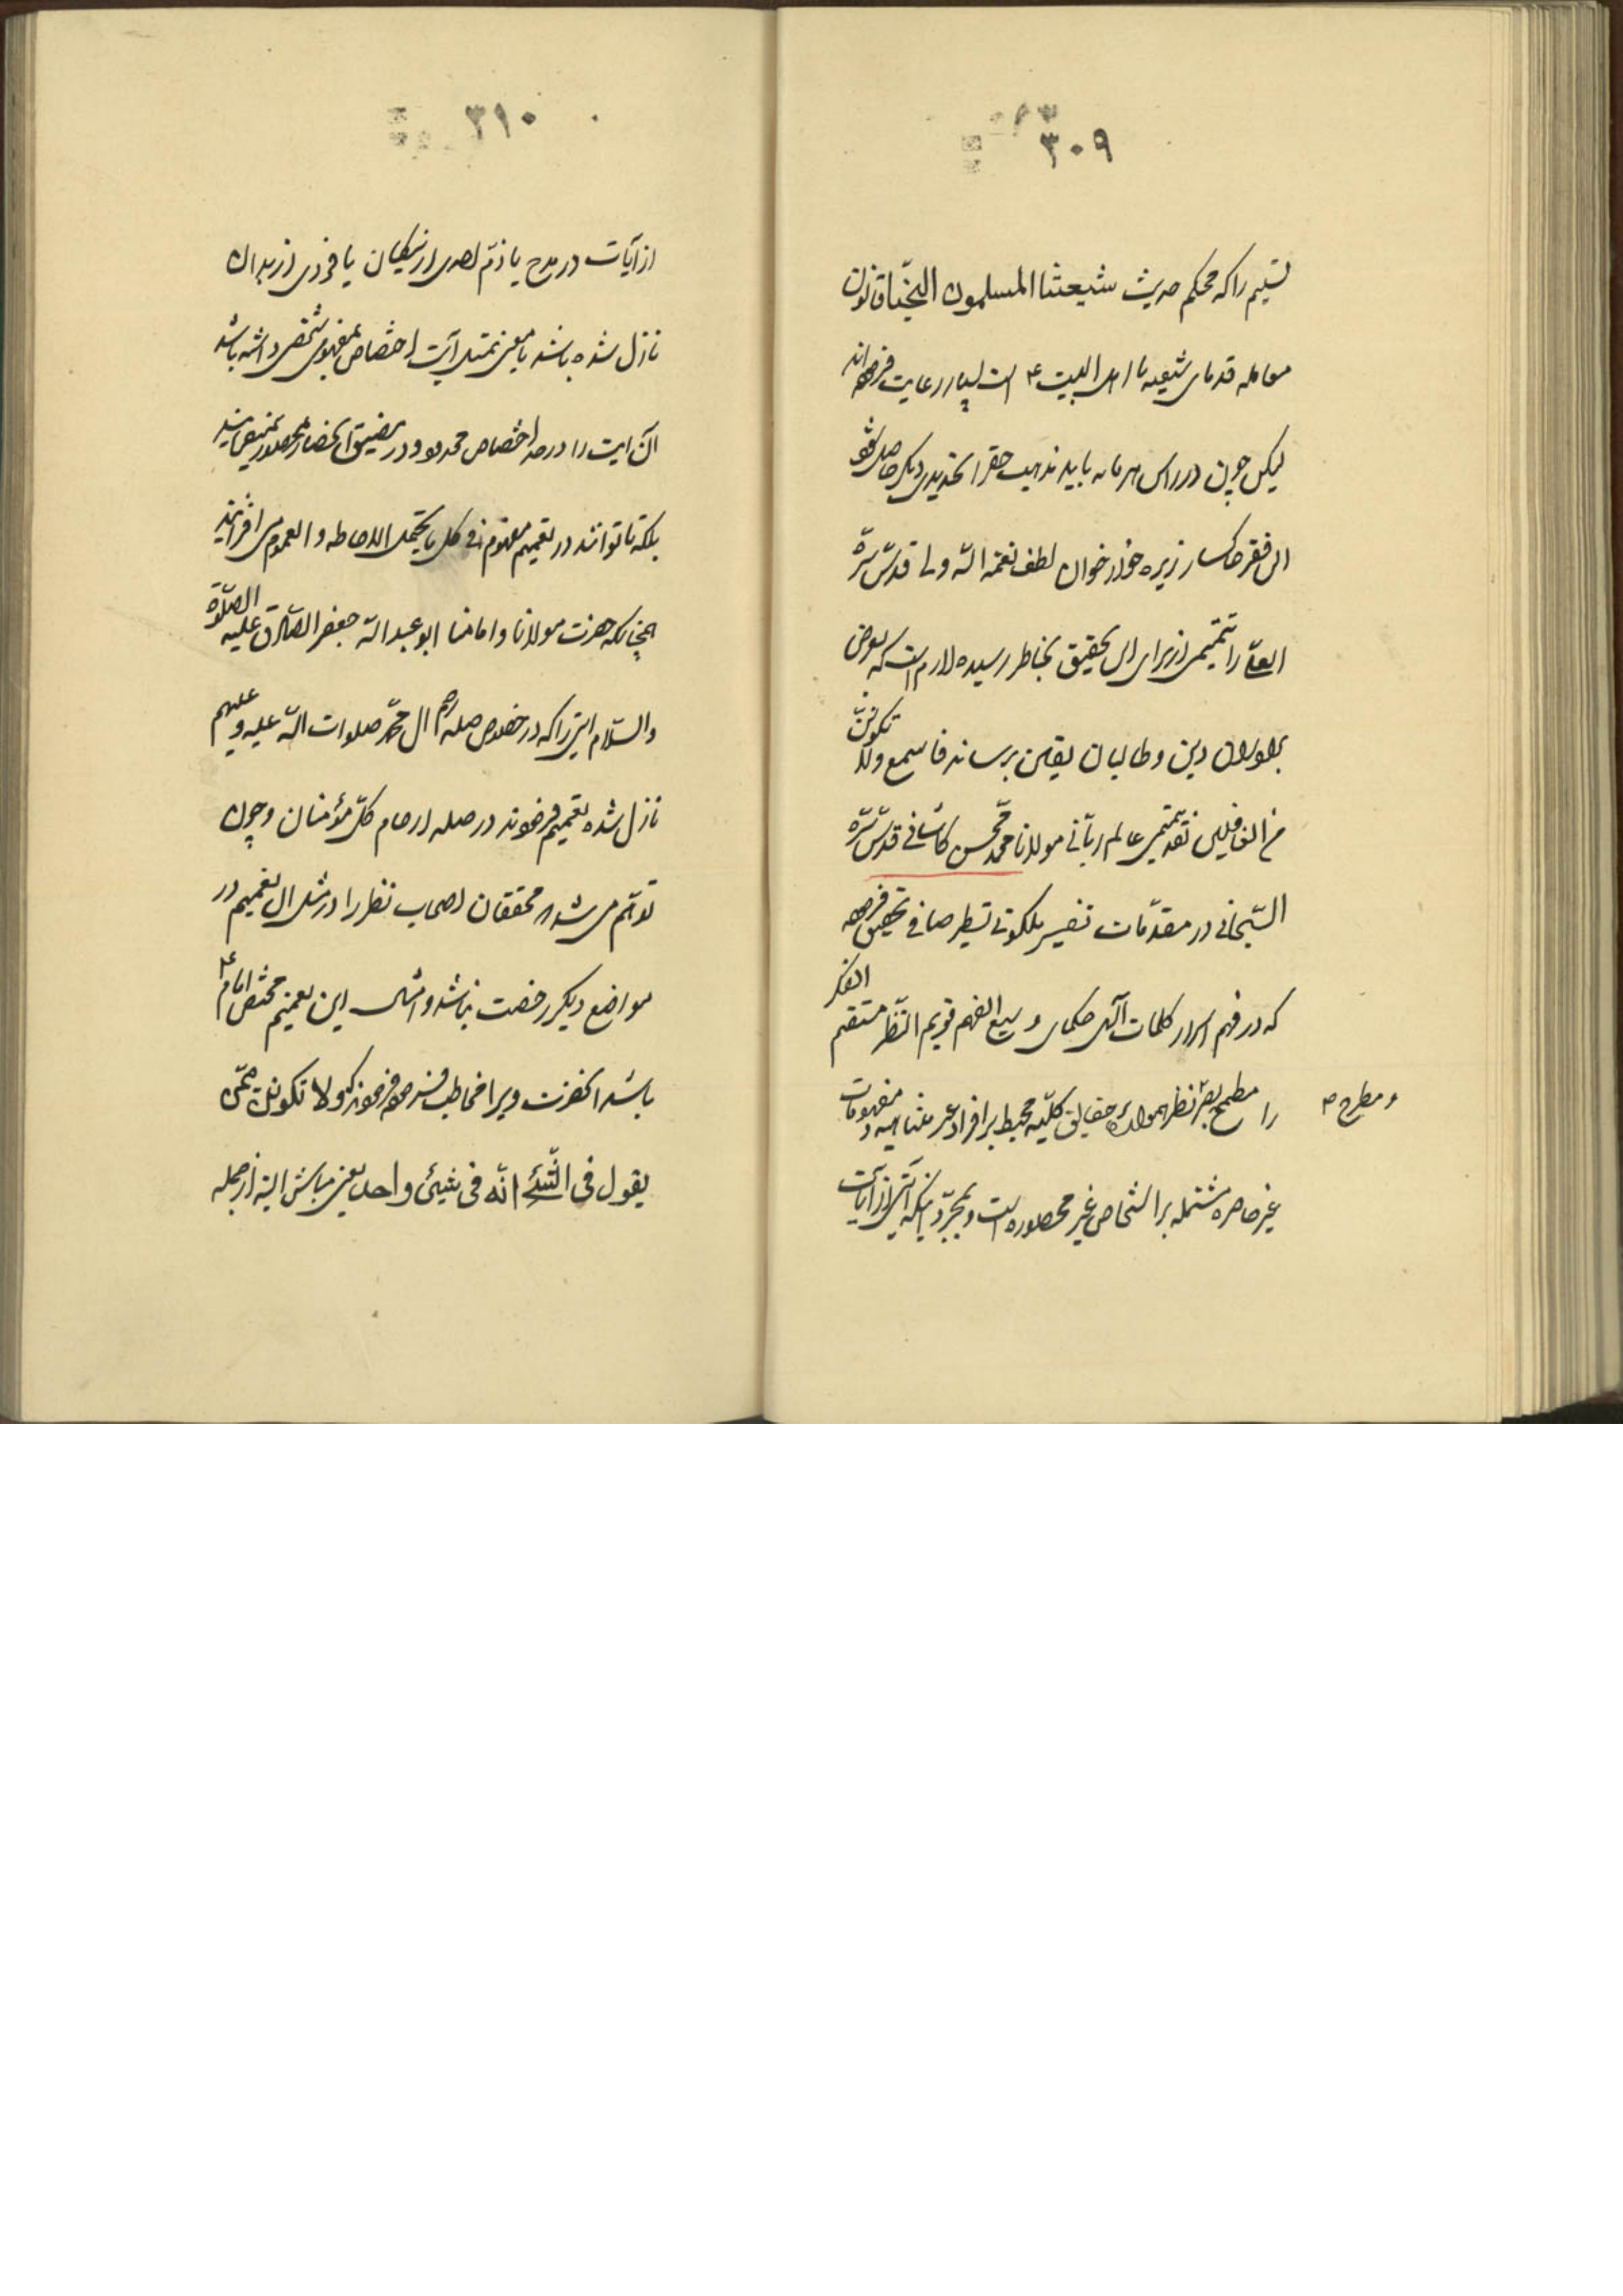 ۳۰۹
تسلیم را که محکم حدیث شیعتنا المسلمون النجباء قانون
معامله قدمای شیعه با اهل البیت ع است بسیار رعایت فرموده‌اند
لیکن چون در راس هر مایه باید مذهب حقرا تجدیدی دیگر حاصل شود
این فقیر خاکسار زیره خور خوان لطف نعمة الله ولی قدس سره
العلی را تتمیمی از برای این تحقیق بخاطر رسیده لازم است که بعرض
برادران دین و طالبان یقین برساند فاسمع ولا تکونن
من الغافلین تقدیمی عالم ربانی مولانا محمد محسن کاشانی قدس سره
السبحانی در مقدمات تفسیر ملکوتی تسطیر صافی تحقیق فرموده
که در فهم اسرار کلمات آلهی حکمای وسیع الفهم قویم النظر مستقیم الفکر
را مطمح بصر نظر همواره حقایق کلیه محیط بر افراد غیر متناهیه و مفهومات
و مطرح
غیر حاصره مشتمله بر اشخاص غیر محصوره است و بمجرد اینکه آیتی از آیات
۳۱۰
از آیات در مدح یا ذم احدی از نیکان یا فردی از بدان
نازل شده باشد یا معنی تمثیل آیت اختصاص بمفهوم شخصی داشته باشد
آن ایت را در حد اختصاص محدود و در مضیق انحصار محصور نمینمایند
بلکه تا توانند در تعمیم مفهوم فی کل ما یحتمل الاحاطه و العموم می افزایند
همچنانکه حضرت مولانا و امامنا ابو عبد الله جعفر الصادق علیه الصلوة
والسلام ایتی را که در خصوص صله رحم ال محمد صلوات الله علیه و علیهم
نازل شده تعمیم فرمودند در صله ارحام کل مؤمنان و چون
توهم می شد که محققان اصحاب نظر را در مثل ان تعمیم در
مواضع دیگر رخصت نباشد و امثال این تعمیم مختص امام ع
باشد انحضرت ویرا مخاطب فرمودند که ولا تکونن ممن
یقول فی الشئ انه فی شیئ واحد یعنی مباش البته از جمله